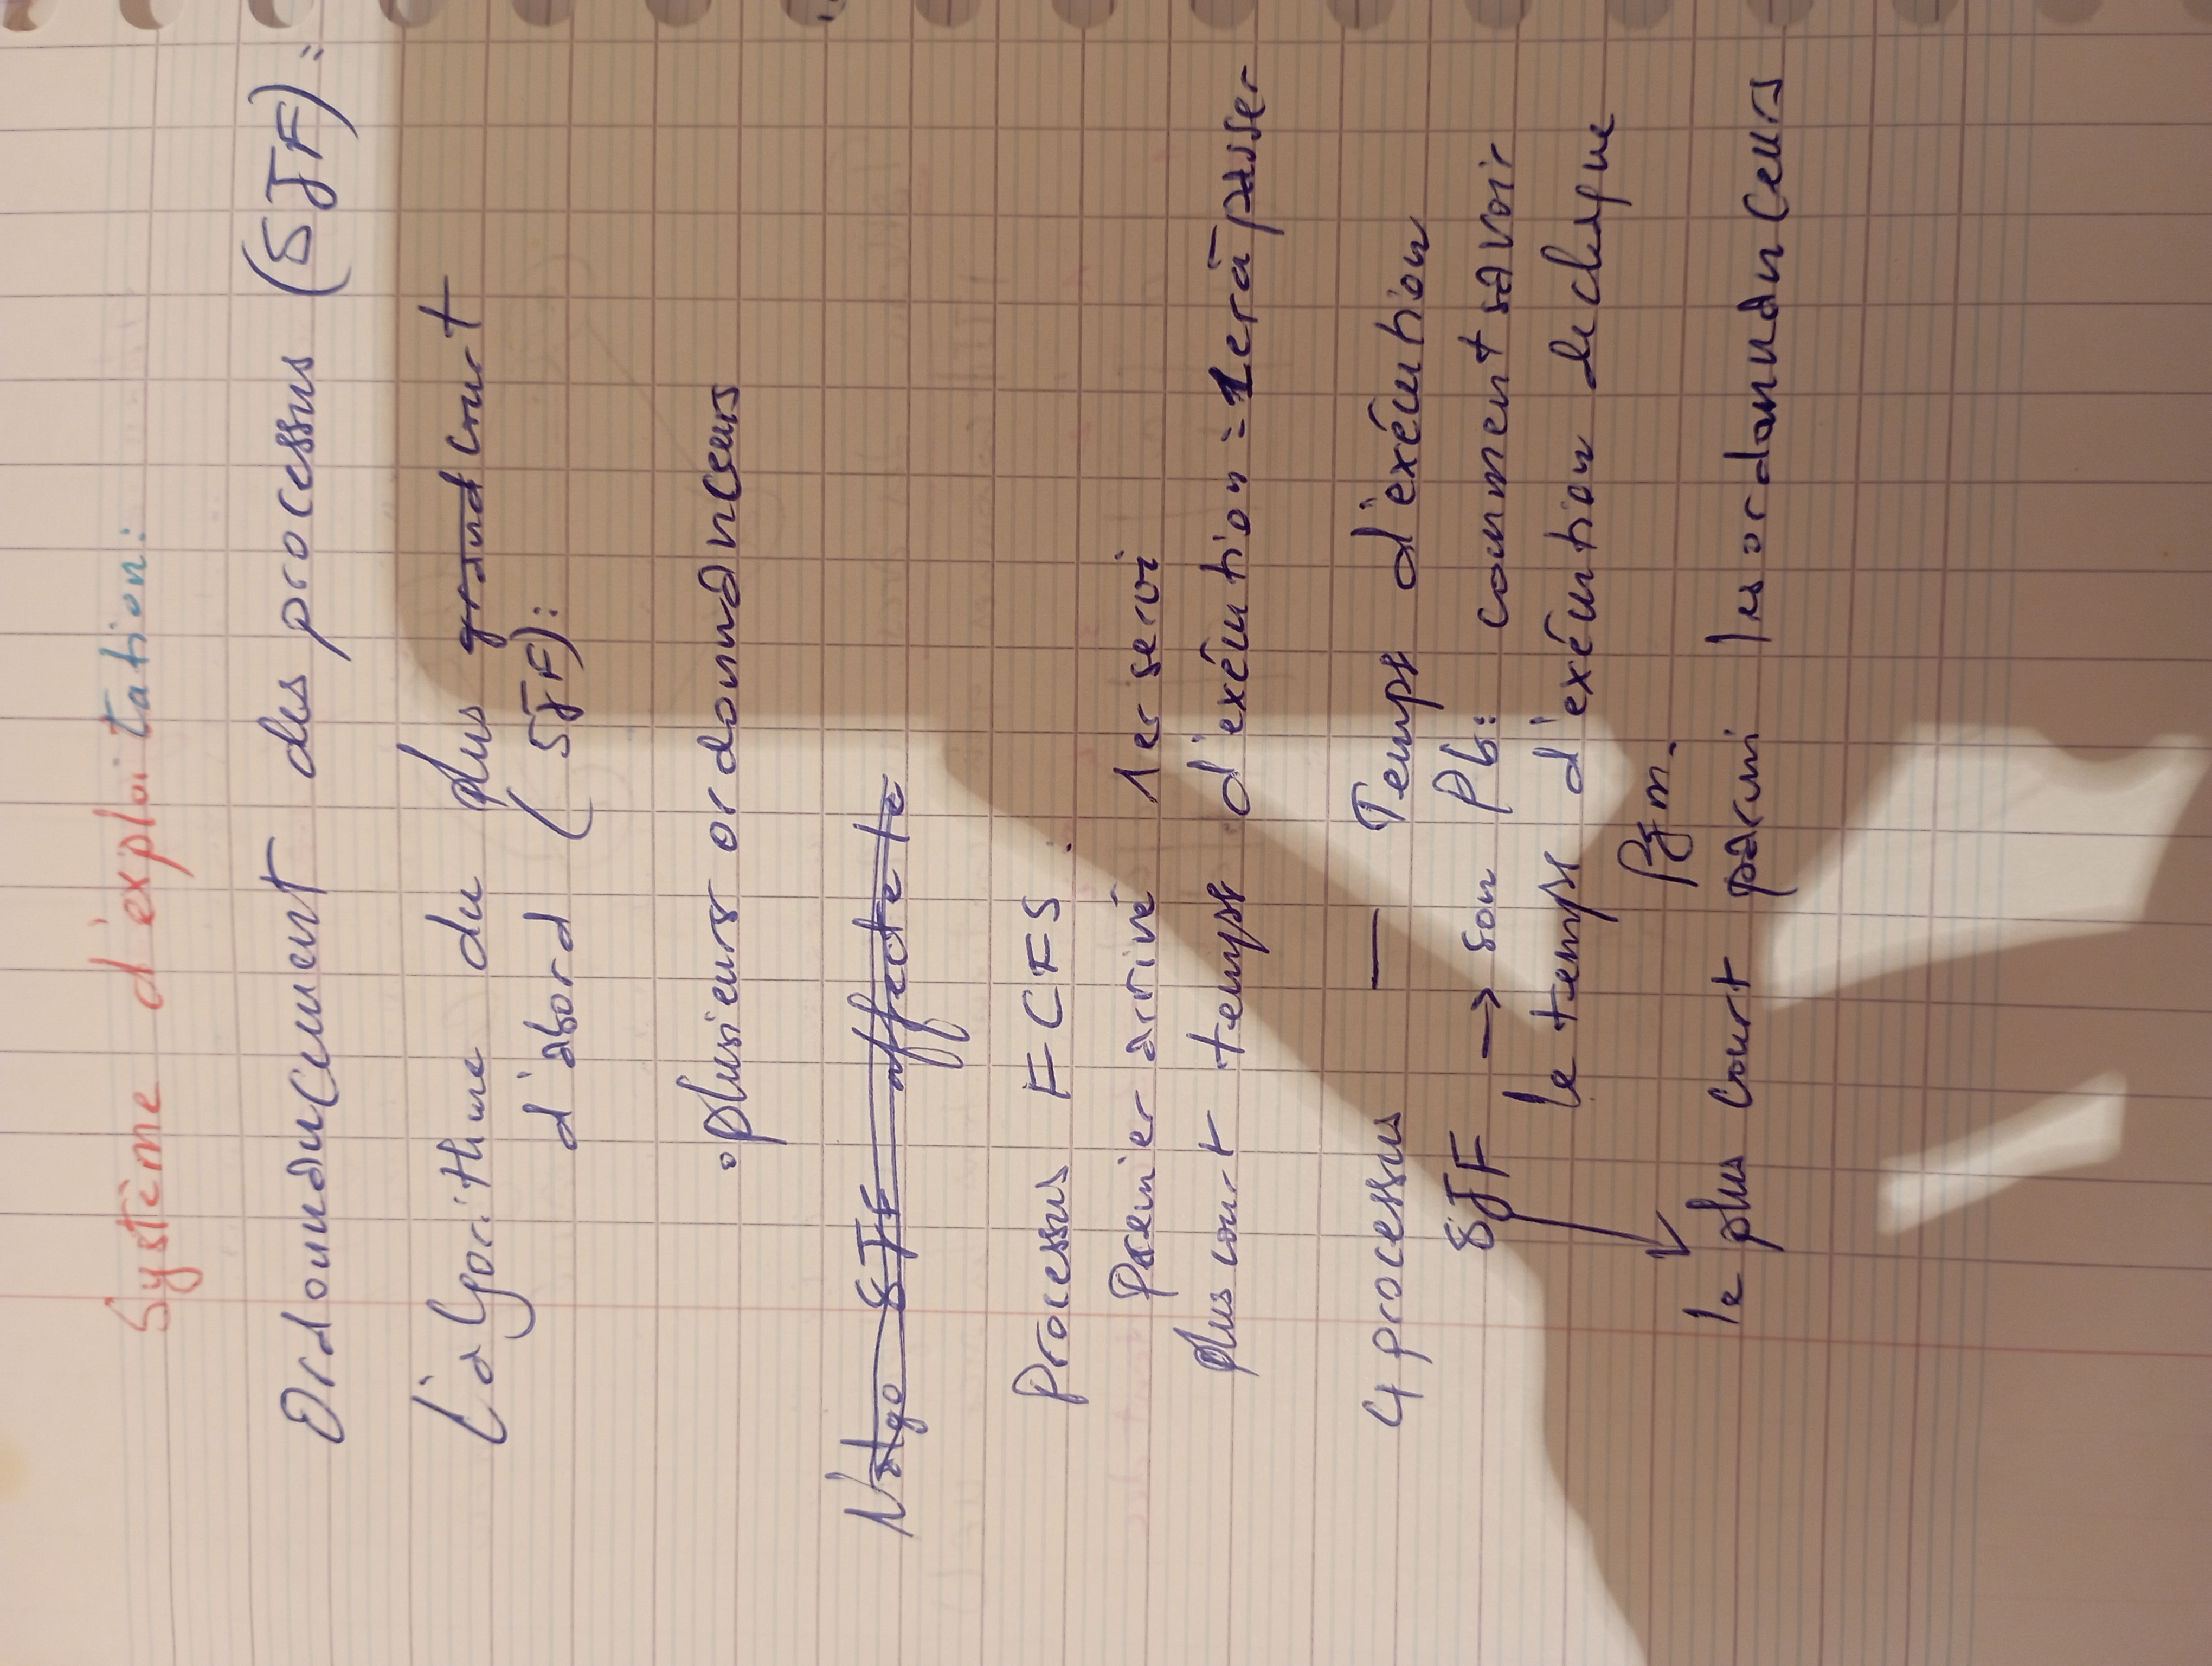 Système d'exploitation:
Ordonnancement des processus (SJF):
L'algorithme du plus grand court
d'abord (SJF):
• plusieurs ordonnanceurs
L'algo SJF affecte le
Processus FCFS :
Premier arrivé 1er servi
plus court temps d'exécution = 1er à passer
4 processus — Temps d'exécution
SJF → son Pb: comment savoir
le temps d'exécution de chaque
Pgm.
le plus court parmi les ordonnanceurs